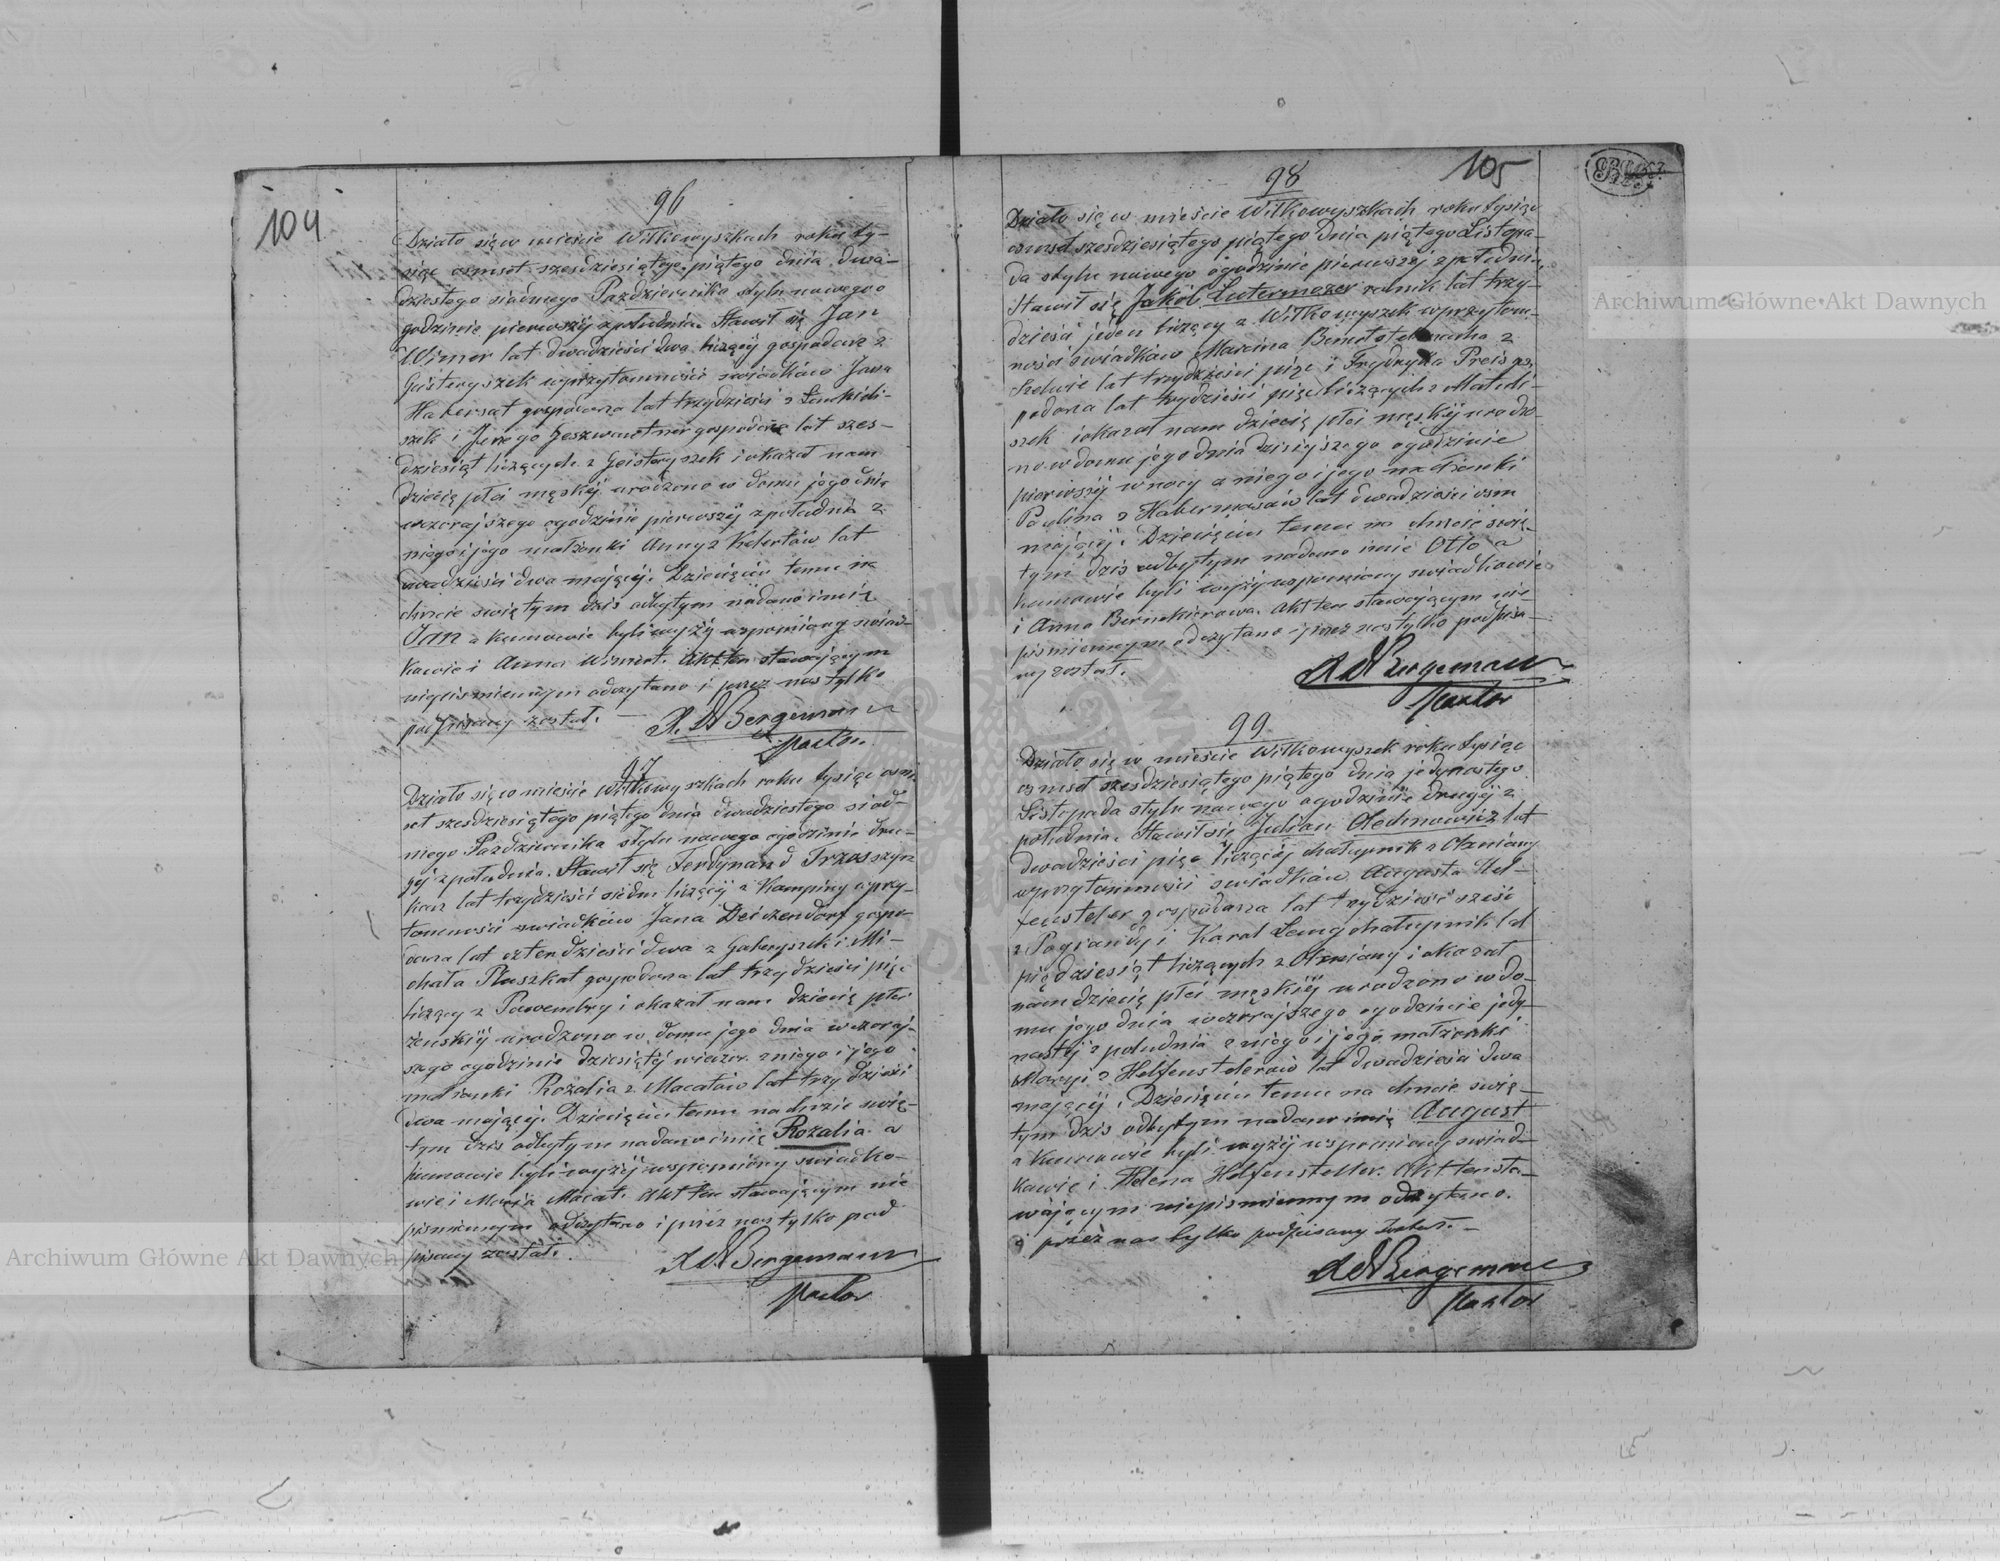 104
96
Działo się w mieście Wiłkowyszkach roku ty-
siąc osmset szesdziesiątego piątego dnia dwa-
dziestego siódmego Pazdziernika stylu nowego o
godzinie pierwszej z południa. Stawił się Jan
Wimer lat dwadzieścia dwa liczący gospodarz z
w przytomności swiadków Jana
Habersat gospodarza lat trzydzieści z
szek i Jerzego gospodarza lat szes-
dziesiąt liczących z i okazał nam
dziecię płci męskiej urodzone w domu jego dnia
wczorajszego o godzinie pierwszej z południa z
niego i jego małżonki Anny z lat
dwadzieścia dwa mającej. Dziecięciu temu na
chrzcie świętym dziś odbytym nadano imię
Jan a kumowie byli wyżej wspomniony swiad-
kowie i Anna Wimer. Akt ten stawającym
niepismiennym odczytano i przez nas tylko
podpisany został. — Bergemann
Pastor.
97
Działo się w mieście Wiłkowyszkach roku tysiąc osm-
set szesdziesiątego piątego dnia dwudziestego siód-
mego Pazdziernika stylu nowego o godzinie dru-
giej z południa. Stawił się Ferdynand
lat trzydzieści siedm liczący z Kampiny w przy-
tomności swiadków Jana gospo-
darza lat czterdzieści dwa z i Mi-
chała gospodarza lat trzydzieści pięć
liczący z i okazał nam dziecię płci
żeńskiej urodzone w domu jego dnia wczoraj-
szego o godzinie dziesiątej wieczor z niego i jego
małżonki Rozalia z Macatów lat trzydzieści
dwa mającej. Dziecięciu temu na chrzcie świę-
tym dziś odbytym nadano imię Rozalia a
kumowie byli wyżej wspomniony swiadko-
wie i Maria Macat. Akt ten stawającym nie
pismiennym odczytano i przez nas tylko pod
pisany został.
Bergemann
Pastor
105
98
Działo się w mieście Wiłkowyszkach roku tysiąc
osmset szesdziesiątego piątego dnia piątego Listopa-
da stylu nowego o godzinie pierwszej z południa,
Stawił się Jakób Lutermozer rolnik lat trzy-
dzieści jeden liczący z Wiłkowyszek w przytom-
ności swiadków Marcina z
lat trzydzieści pięć i Frydryka Preis gos-
podarza lat trzydzieści pięć liczących z
szek i okazał nam dziecię płci męskiej urodzo-
no w domu jego dnia dzisiejszego o godzinie
pierwszej w nocy z niego i jego małżonki
Paulina z lat dwadzieścia osm
mającej. Dziecięciu temu na chrzcie swię-
tym dziś odbytym nadano imie Otto a
kumowie byli wyżej wspomniony swiadkowie
i Anna Akt ten stawającym nie-
pismiennym odczytano i przez nas tylko podpisa-
ny został.
Bergemann
Pastor
99
Działo się w mieście Wiłkowyszek roku tysiąc
osmset szesdziesiątego piątego dnia jedynastego
Listopada stylu nowego o godzinie drugiej z
południa. Stawił się Julian Olechnowicz lat
dwadzieścia pięć liczący chałupnik z
w przytomności swiadków Augusta Hel-
fensteler gospodarza lat trzydzieści sześć
z i Karol chałupnik lat
pięćdziesiąt liczących z i okazał
nam dziecię płci męskiej urodzone w do-
mu jego dnia wczorajszego o godzinie jedy-
nastej z południa z niego i jego małżonki
Maryi z Helfenstelerów lat dwadzieścia dwa
mającej. Dziecięciu temu na chrzcie swię-
tym dziś odbytym nadano imię August
a kumowie byli wyżej wspomniony swiad-
kowie i Helena Helfensteller. Akt ten sta-
wającym niepismiennym odczytano.
i przez nas tylko podpisany został. —
Bergemann
Pastor
Archiwum Główne Akt Dawnych
Archiwum Główne Akt Dawnych